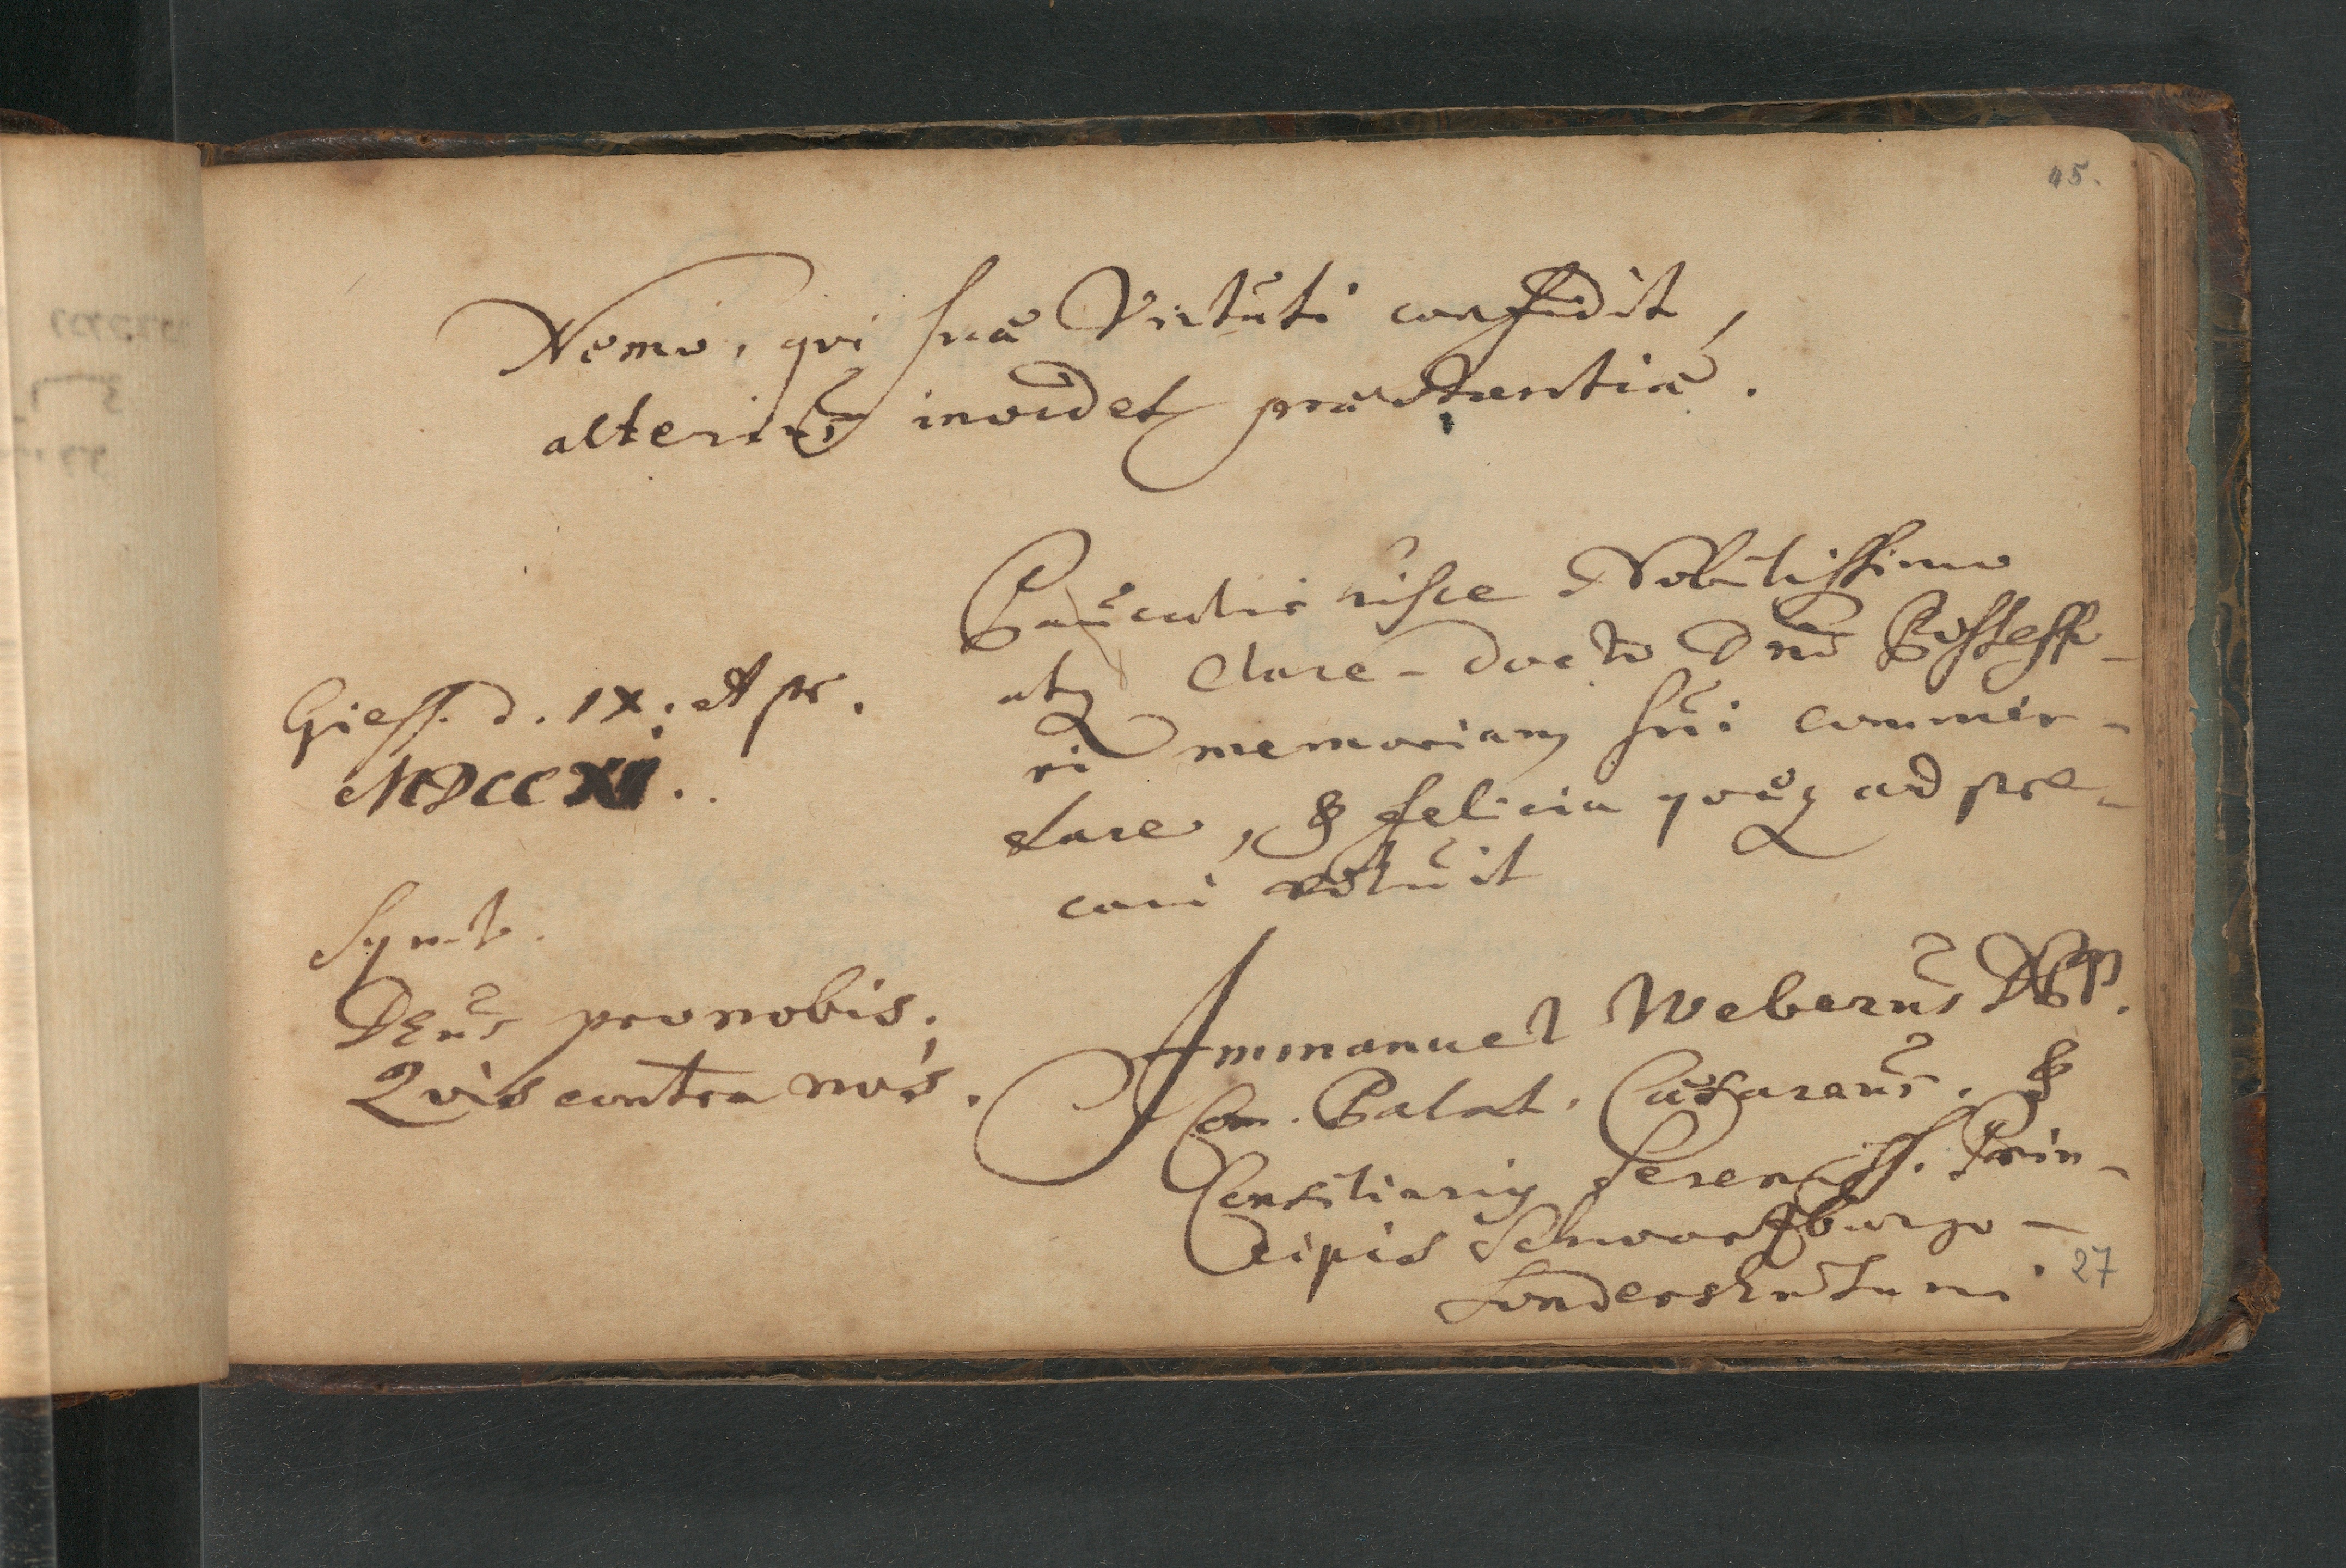 45.
Nemo, qvi suæ Virtuti confidit,
alterius invidet præstantiæ.
Pauculis hisce Nobilissimo
atq Clare-docto Dno Possesso-
ri memoriam sui commen-
dare, & felicia qvæq ad pre-
cari voluit
Giess. d. IX. Apr.
MDCCXII.
Symb.
DEus pro nobis,
Qvis contra nos.
Immanuel Weberus D.
Com. Palat. Cæsareus. &
Consiliariq Sereniss. Prin-
cipis Schwartzburgo-
Sondershusani.
27